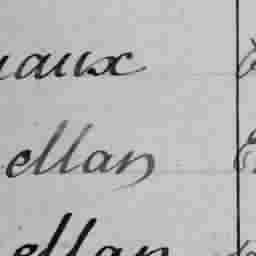 aux
ellan
ellan